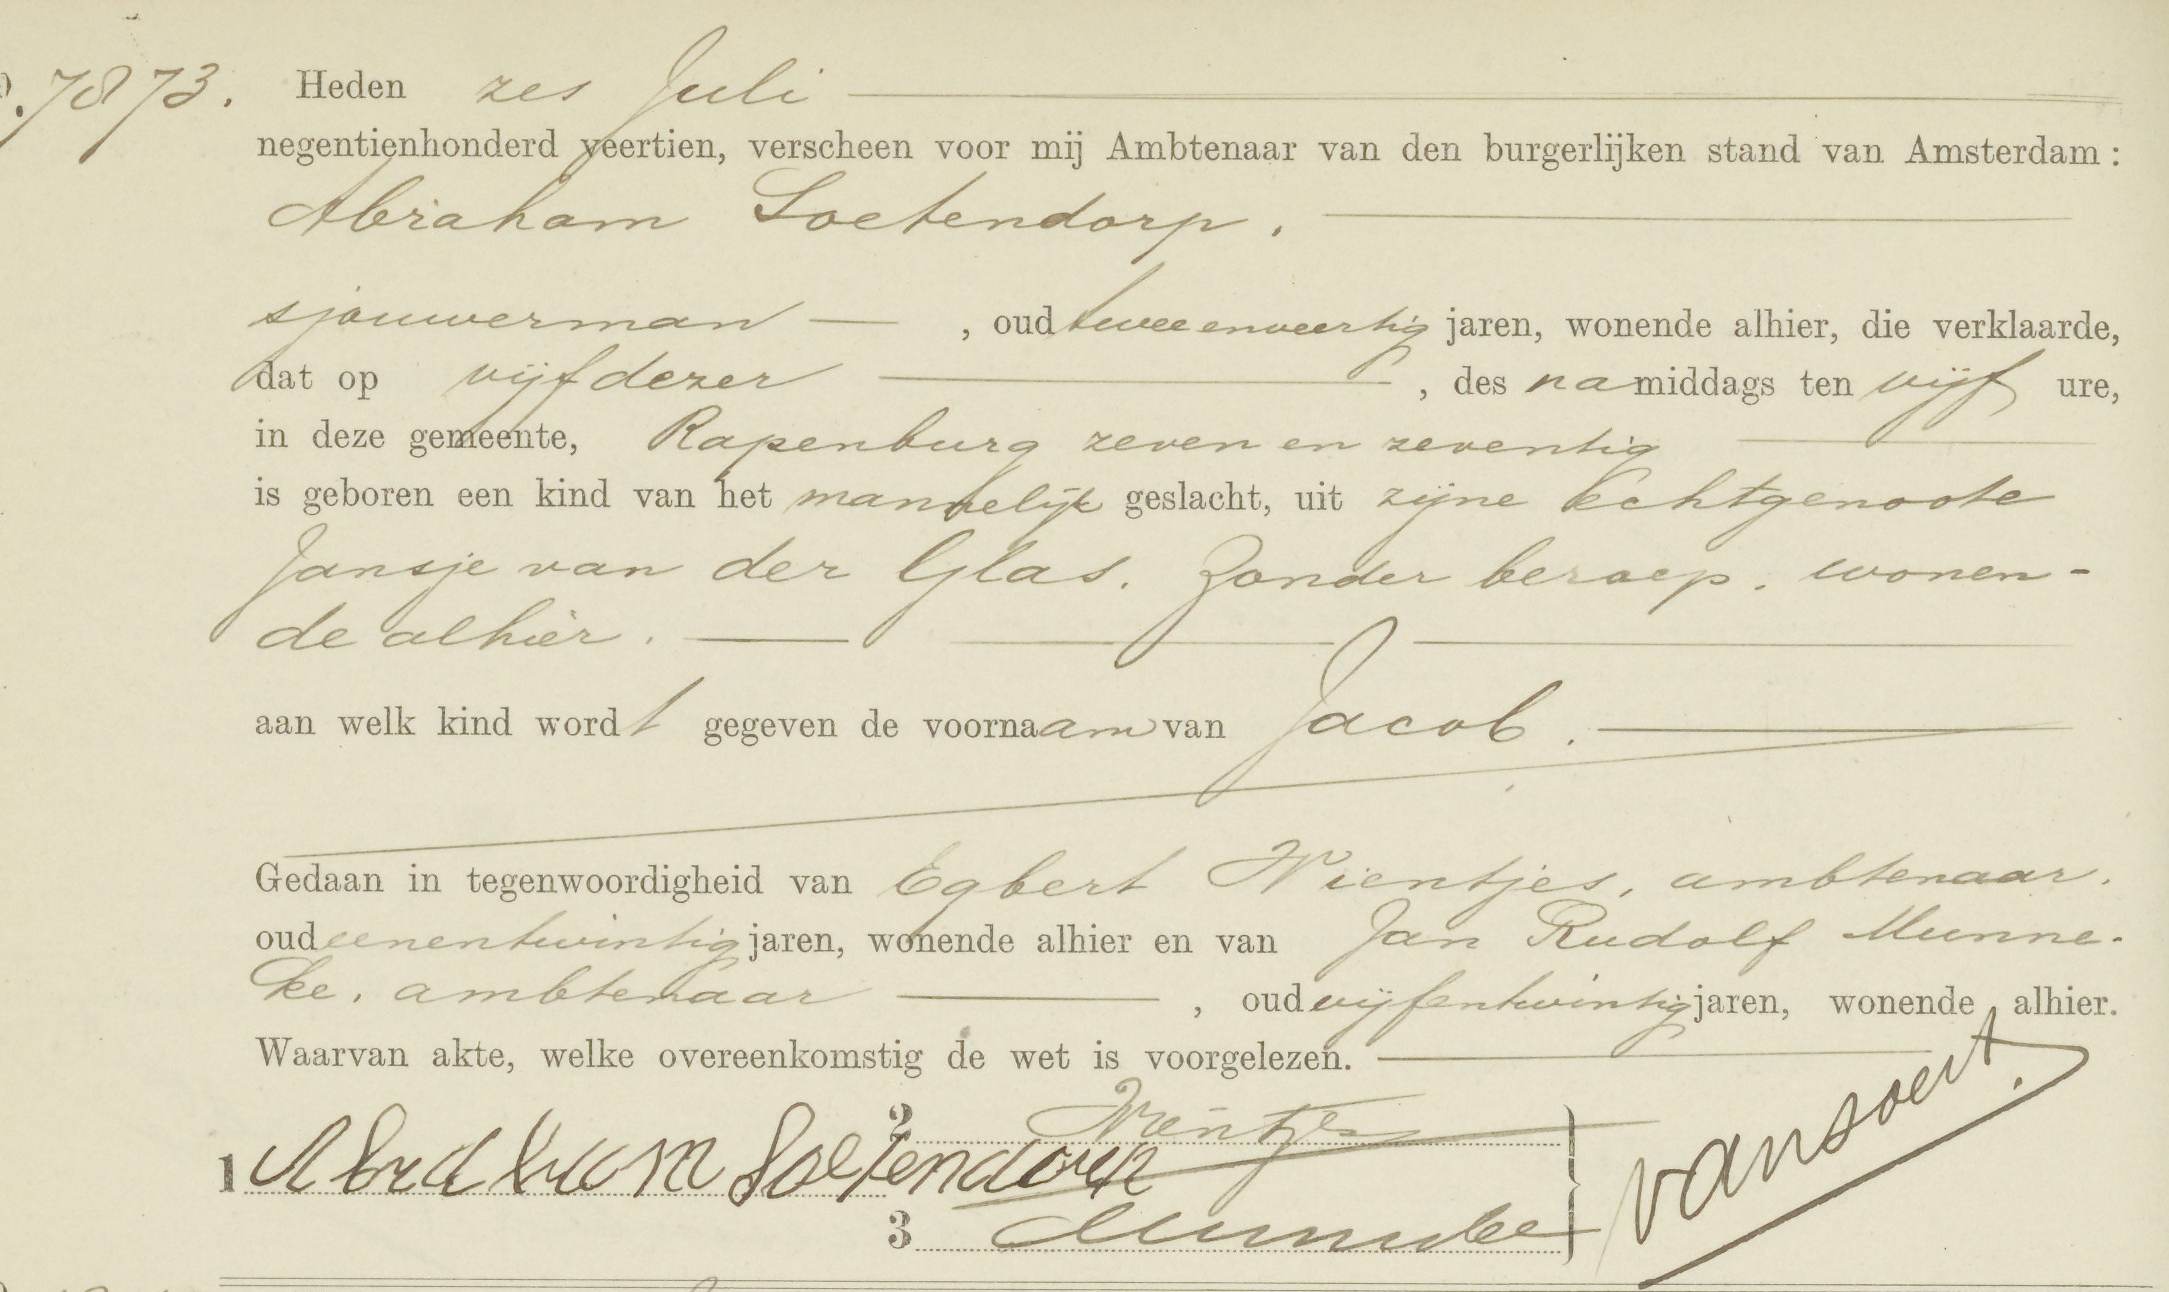 7873. Heden zes Juli
negentienhonderd veertien, verscheen voor mij Ambtenaar van den burgerlijken stand van Amsterdam:
Abraham Soetendorp.
sjouwerman, oud tweeenveertig jaren, wonende alhier, die verklaarde,
dat op vijf dezer, des namiddags ten vijf ure,
in deze gemeente, Rapenburg zeven en zeventig
is geboren een kind van het mannelijk geslacht, uit zijne Echtgenoote
Jansje van der Glas. Zonder beroep. wonen-
de alhier.
aan welk kind wordt gegeven de voornaam van Jacob.
Gedaan in tegenwoordigheid van Egbert Wientjes, ambtenaar.
oud eenentwintig jaren, wonende alhier en van Jan Rudolf Munne-
ke, ambtenaar, oud vijfentwintig jaren, wonende alhier.
Waarvan akte, welke overeenkomstig de wet is voorgelezen.
2 Wientjes
1 Abraham Soetendorp
3 Munneke
van Soest